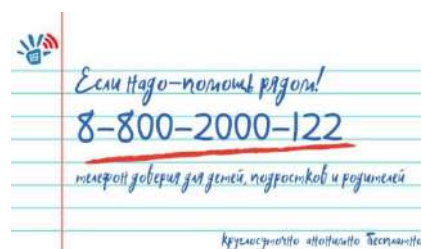 Если надо-помощь рядом!
8-800-2000-122
телефон доверия для детей, подростков и родителей
круглосуточно анонимно бесплатно